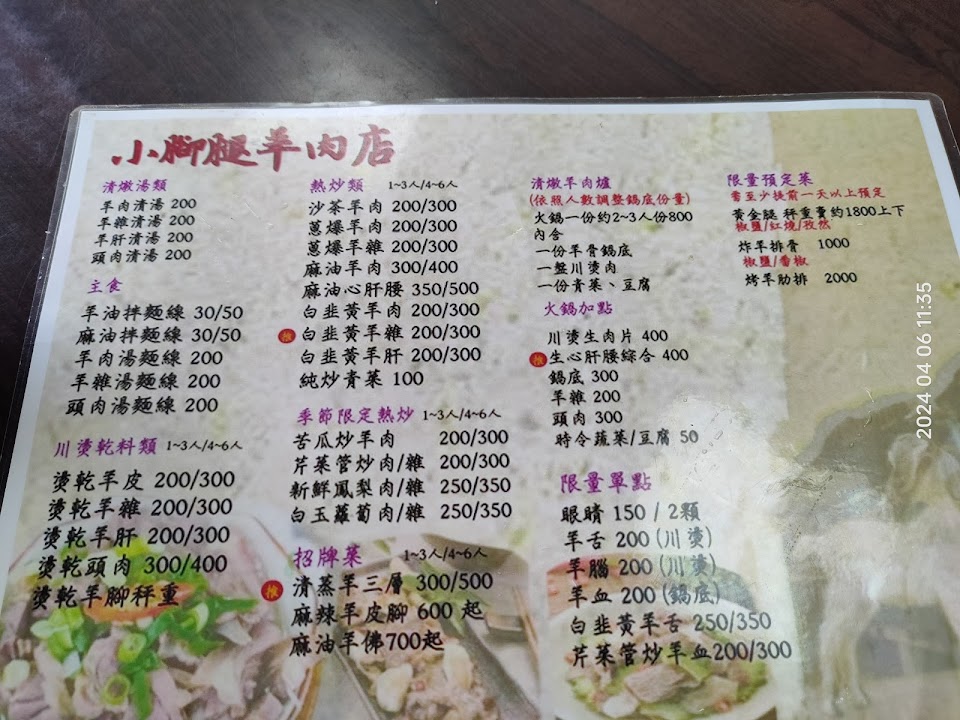 小腳腿羊肉店
清燉湯類
羊肉清湯 200
羊雜清湯 200
羊肝清湯 200
頭肉清湯 200
主食
羊油拌麵線 30/50
麻油拌麵線 30/50
羊肉湯麵線 200
羊雜湯麵線 200
頭肉湯麵線 200
川燙乾料類 1~3人/4~6人
燙乾羊皮 200/300
燙乾羊雜 200/300
燙乾羊肝 200/300
燙乾頭肉 300/400
燙乾羊腳秤重
熱炒類 1~3人/4~6人
沙茶羊肉 200/300
蔥爆羊肉 200/300
蔥爆羊雜 200/300
麻油羊肉 300/400
麻油心肝腰 350/500
白韭黃羊肉 200/300
推 白韭黃羊雜 200/300
白韭黃羊肝 200/300
純炒青菜 100
季節限定熱炒 1~3人/4~6人
苦瓜炒羊肉 200/300
芹菜管炒肉/雜 200/300
新鮮鳳梨肉/雜 250/350
白玉蘿蔔肉/雜 250/350
招牌菜 1~3人/4~6人
推 清蒸羊三層 300/500
麻辣羊皮腳 600 起
麻油羊佛700起
清燉羊肉爐
(依照人數調整鍋底份量)
火鍋一份約2~3人份800
內含
一份羊骨鍋底
一盤川燙肉
一份青菜、豆腐
火鍋加點
川燙生肉片 400
推 生心肝腰綜合 400
鍋底 300
羊雜 200
頭肉 300
時令蔬菜/豆腐 50
限量單點
眼睛 150 / 2顆
羊舌 200 (川燙)
羊腦 200 (川燙)
羊血 200 (鍋底)
白韭黃羊舌 250/350
芹菜管炒羊血200/300
限量預定菜
需至少提前一天以上預定
黃金腿 秤重賣約1800上下
椒鹽/紅燒/孜然
炸羊排骨 1000
椒鹽/番椒
烤羊肋排 2000
2024 04 06 11:35